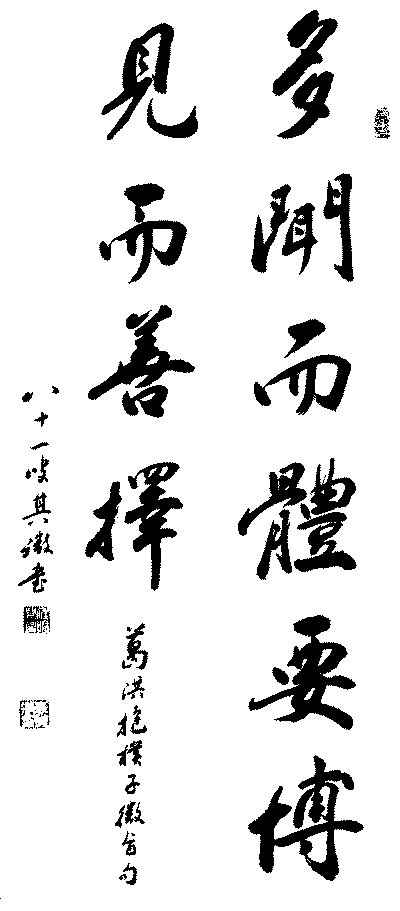 多聞而體要博
見而善擇
葛洪抱樸子微旨句
八十一叟其微書